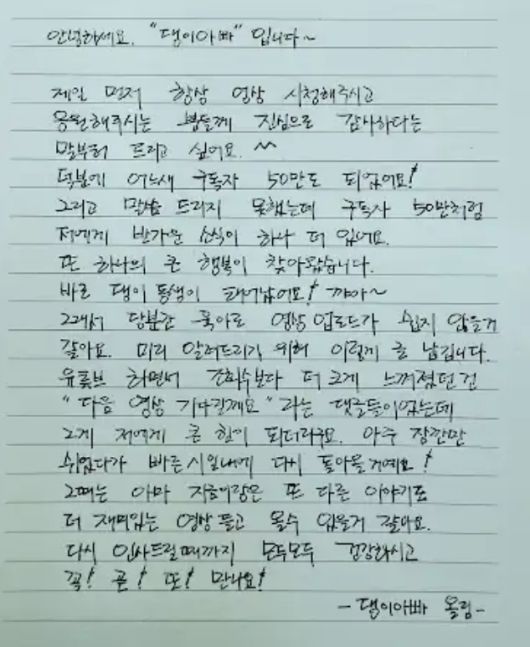 안녕하세요. "댕이아빠" 입니다~
제일 먼저 항상 영상 시청해주시고
응원해주시는 분들께 진심으로 감사하다는
말부터 드리고 싶어요. ^^
덕분에 어느새 구독자 50만도 되었어요!
그리고 말씀 드리지 못했는데 구독자 50만처럼
저에게 반가운 소식이 하나 더 있어요.
또 하나의 큰 행복이 찾아왔습니다.
바로 댕이 동생이 태어났어요! 꺄아~
그래서 당분간 육아로 영상 업로드가 쉽지 않을거
같아요. 미리 알려드리기 위해 이렇게 글 남깁니다.
유튜브 하면서 조회수보다 더 크게 느껴졌던 건
"다음 영상 기다릴께요" 라는 댓글들이었는데
그게 저에게 큰 힘이 되더라구요. 아주 잠깐만
쉬었다가 빠른 시일내에 다시 돌아올거예요!
그때는 아마 지금이랑은 또 다른 이야기로
더 재미있는 영상 들고 올수 있을거 같아요.
다시 인사드릴때까지 모두모두 건강하시고
꼭! 곧! 또! 만나요!
- 댕이아빠 올림 -